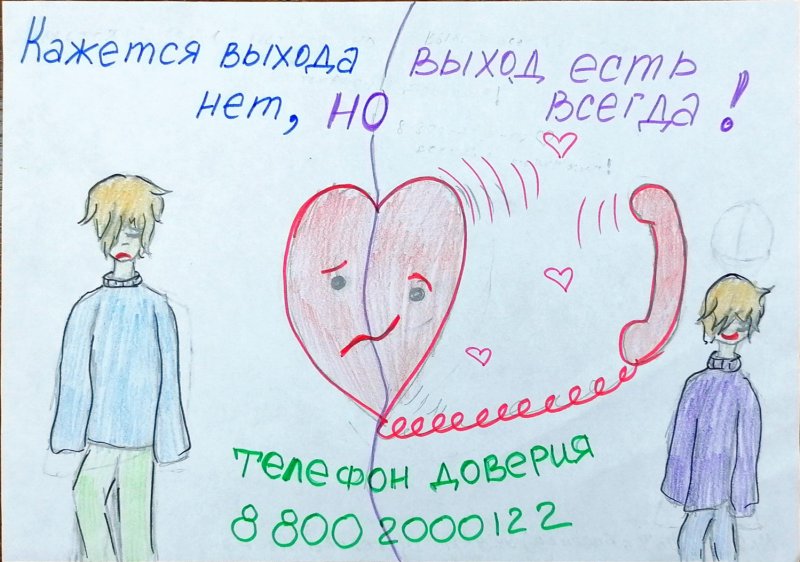 Кажется выхода
нет, НО
выход есть
всегда!
телефон доверия
8 800 2000122